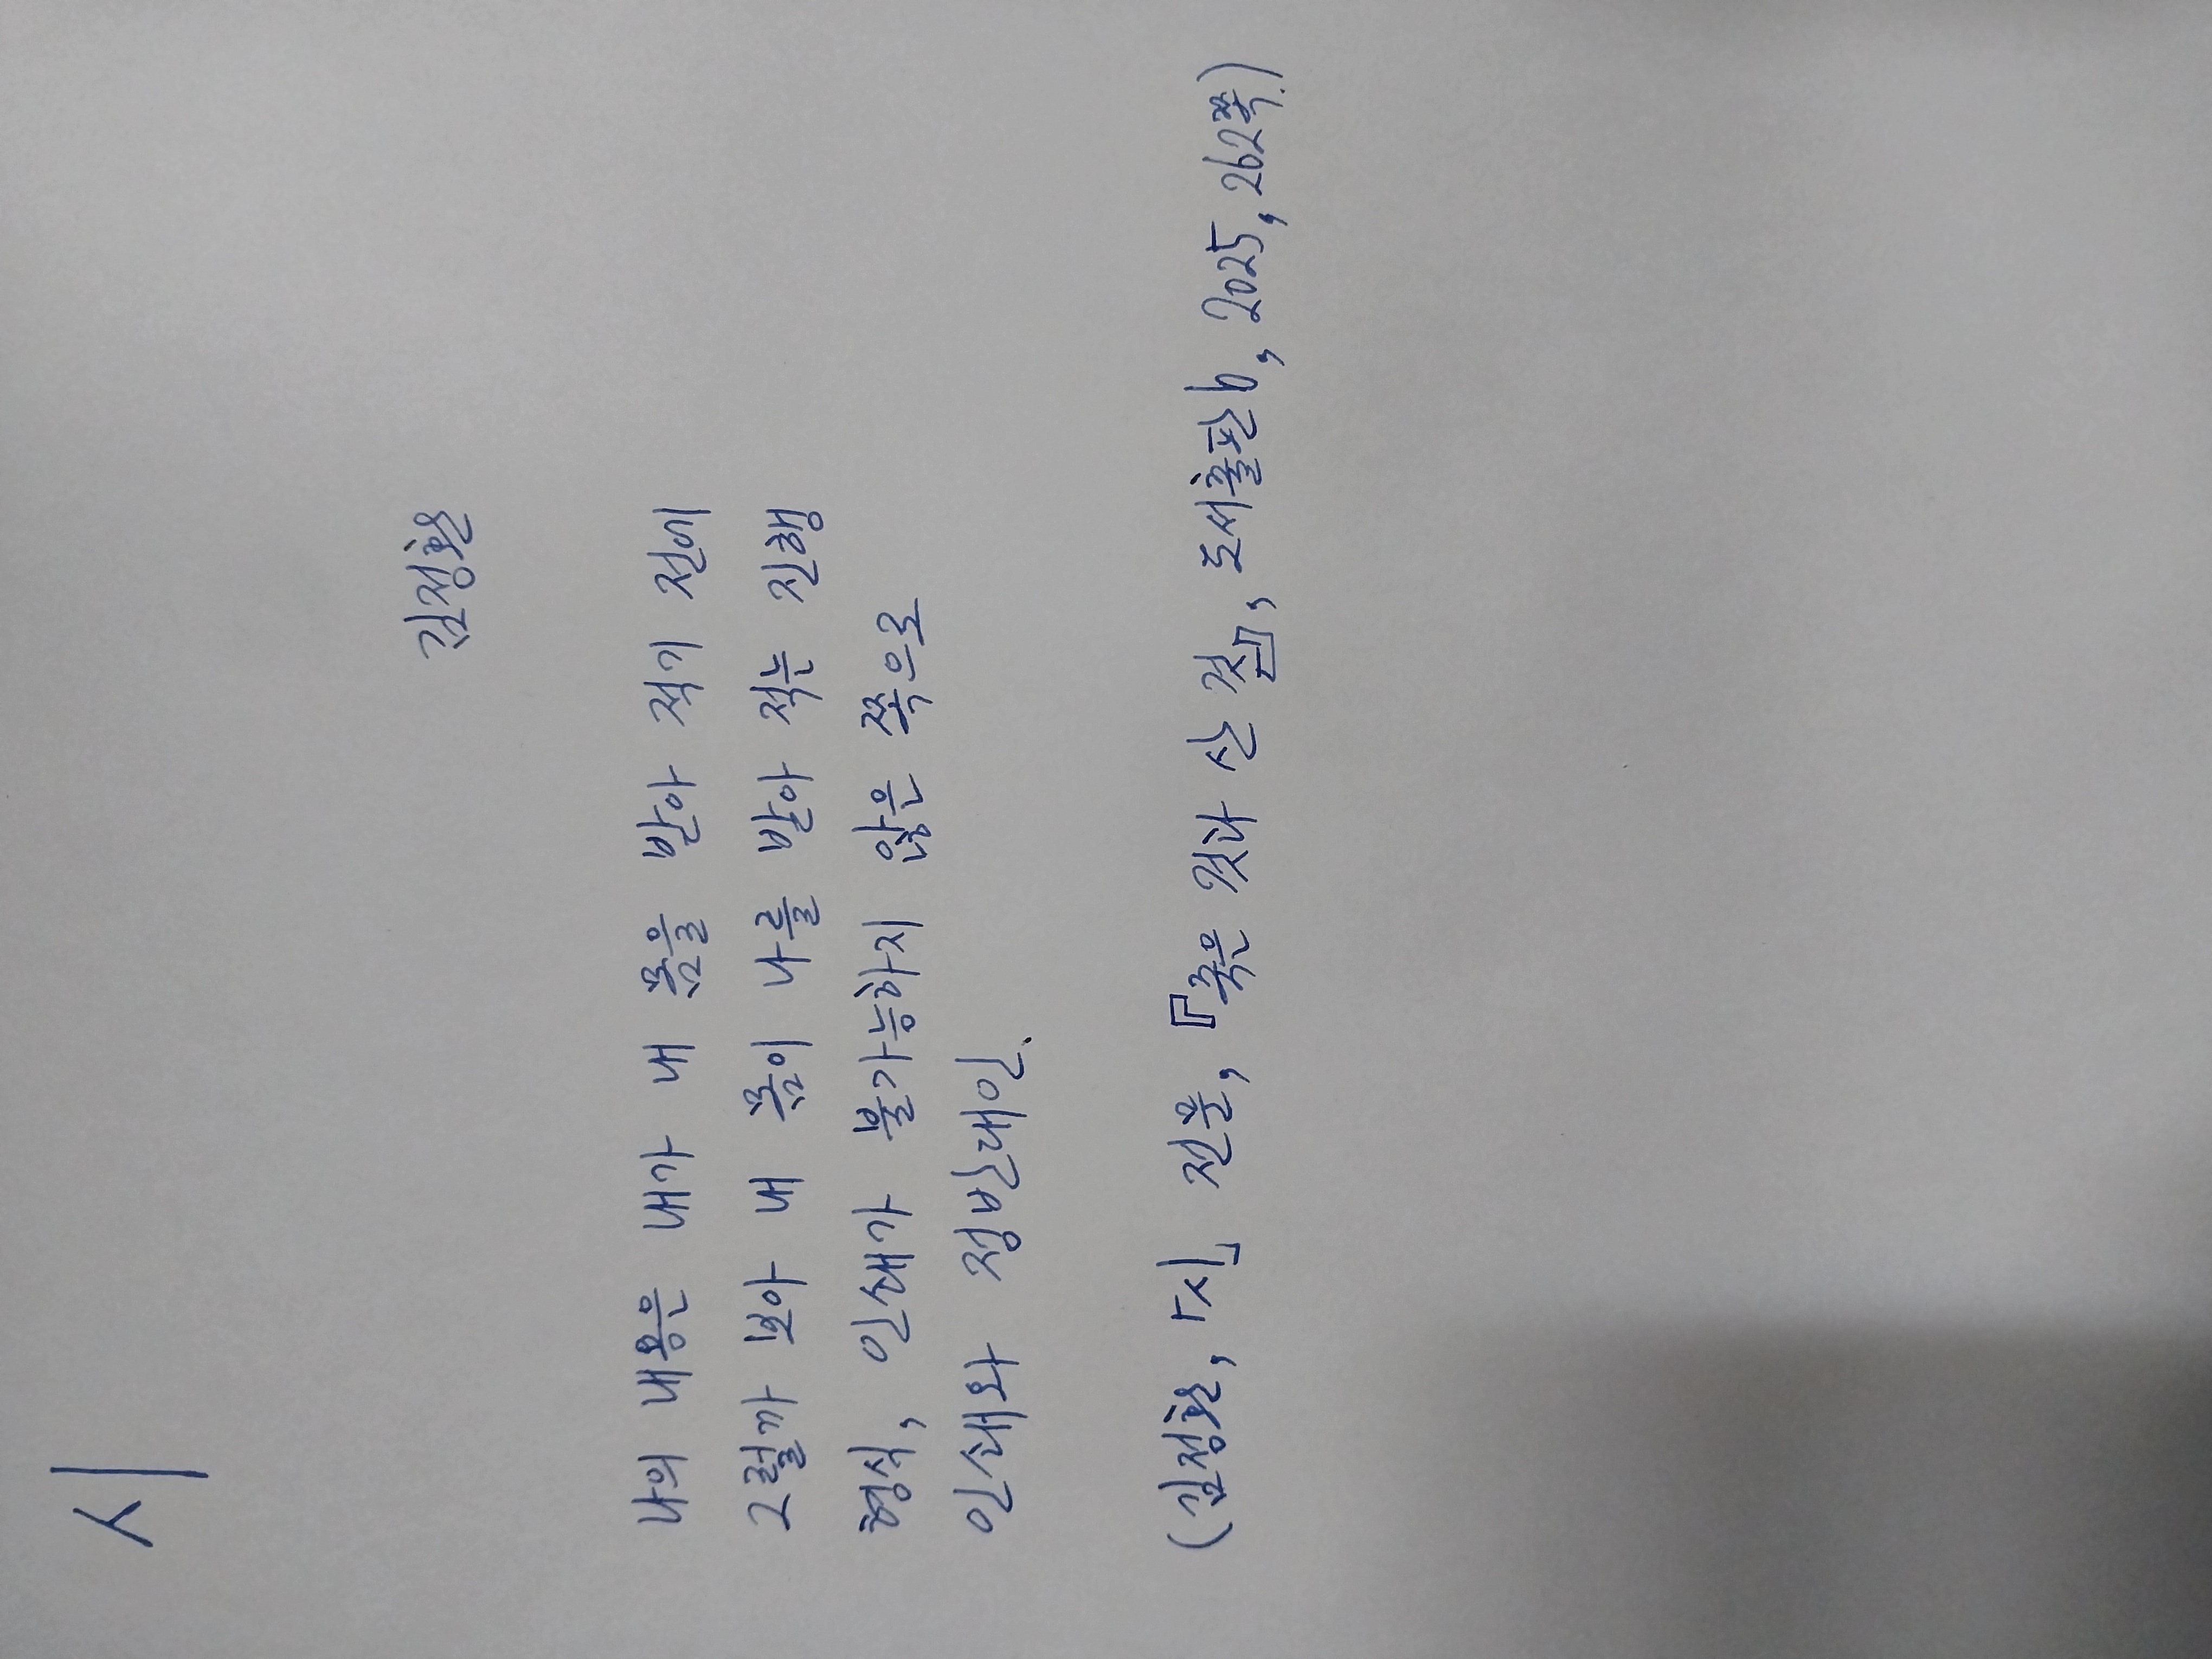 시
김정환
나의 내용은 내가 내 춤을 받아 적기 전에
그럴까 보아 내 춤이 나를 받아 적는 진행
형식, 인쇄가 불가능하지 않은 쪽으로
인쇄와 정반대인.
(김정환, 「시」 전문, 『죽은 것과 산 것』, 도서출판 b, 2025, 262쪽.)